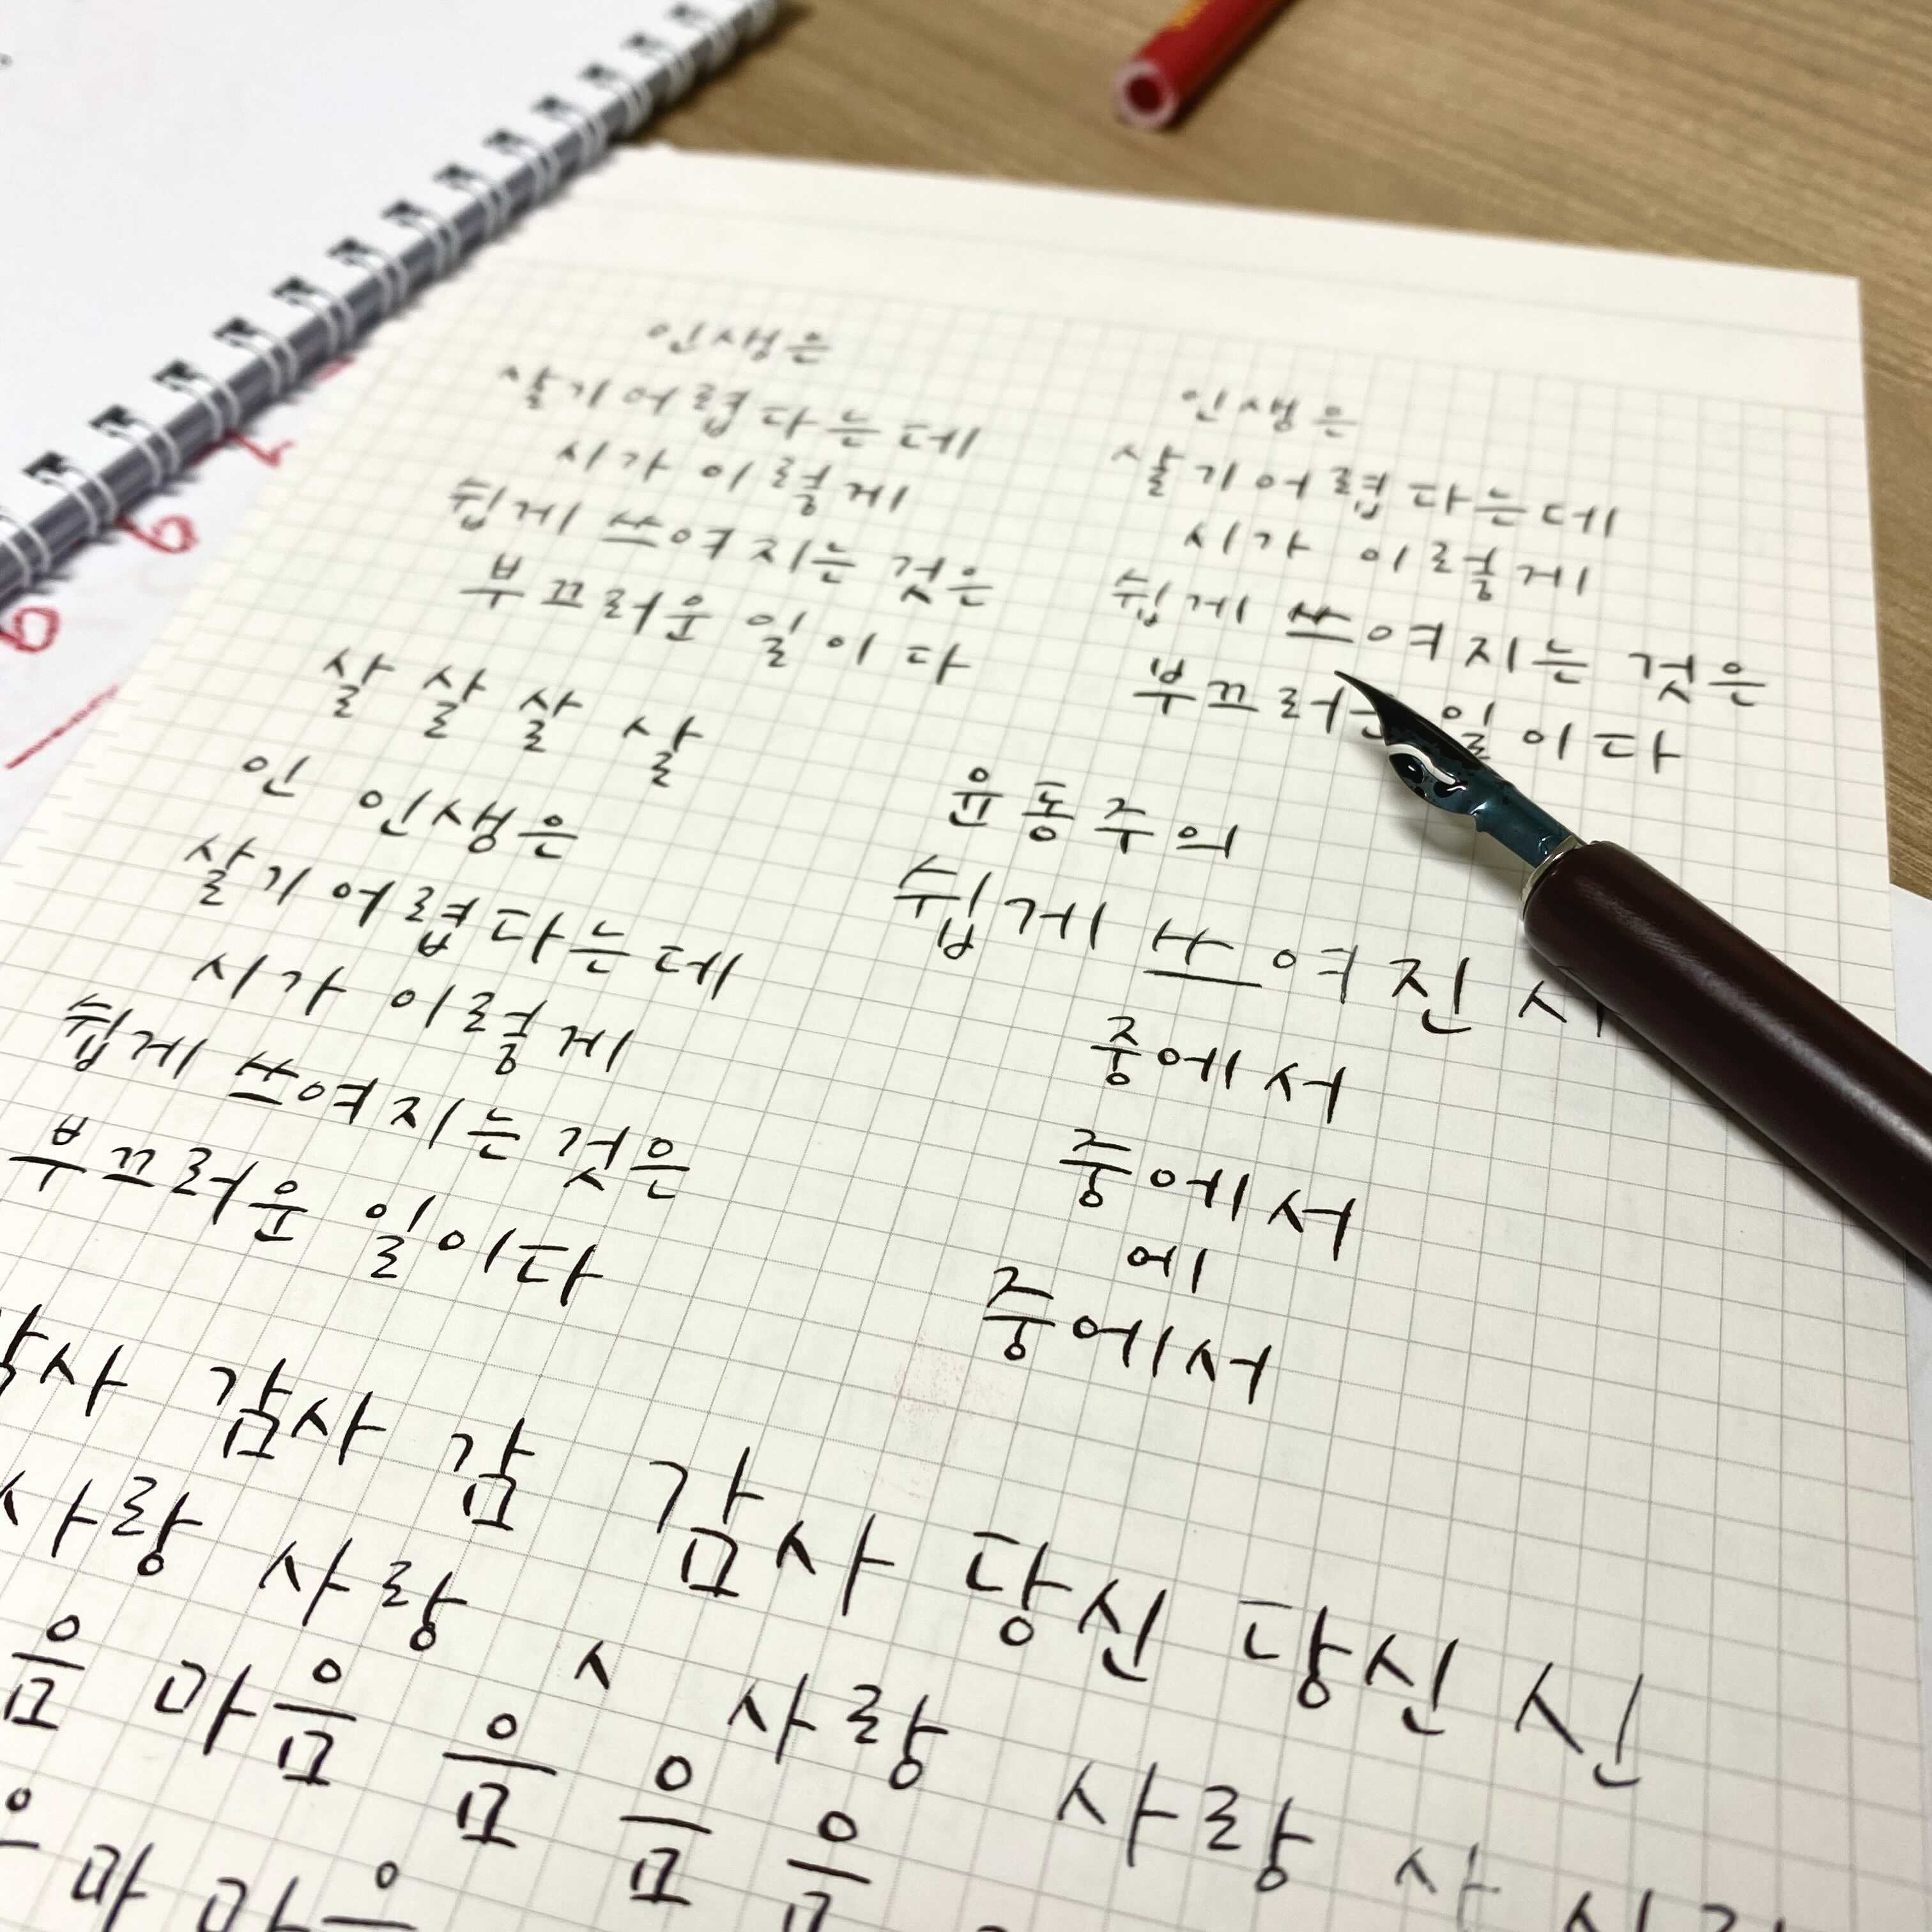 인생은
살기 어렵다는데
시가 이렇게
쉽게 쓰여지는 것은
부끄러운 일이다
살 살 살 살
인 인생은
살기 어렵다는데
시가 이렇게
쉽게 쓰여지는 것은
부끄러운 일이다
인생은
살기 어렵다는데
시가 이렇게
쉽게 쓰여지는 것은
부끄러운 일이다
윤동주의
쉽게 쓰여진 시
중에서
중에서
에
중에서
감사 감사 감 감사 당신 당신 신
사랑 사랑 ㅅ 사랑 사랑 사
음 마음 음 음 음
마 마음